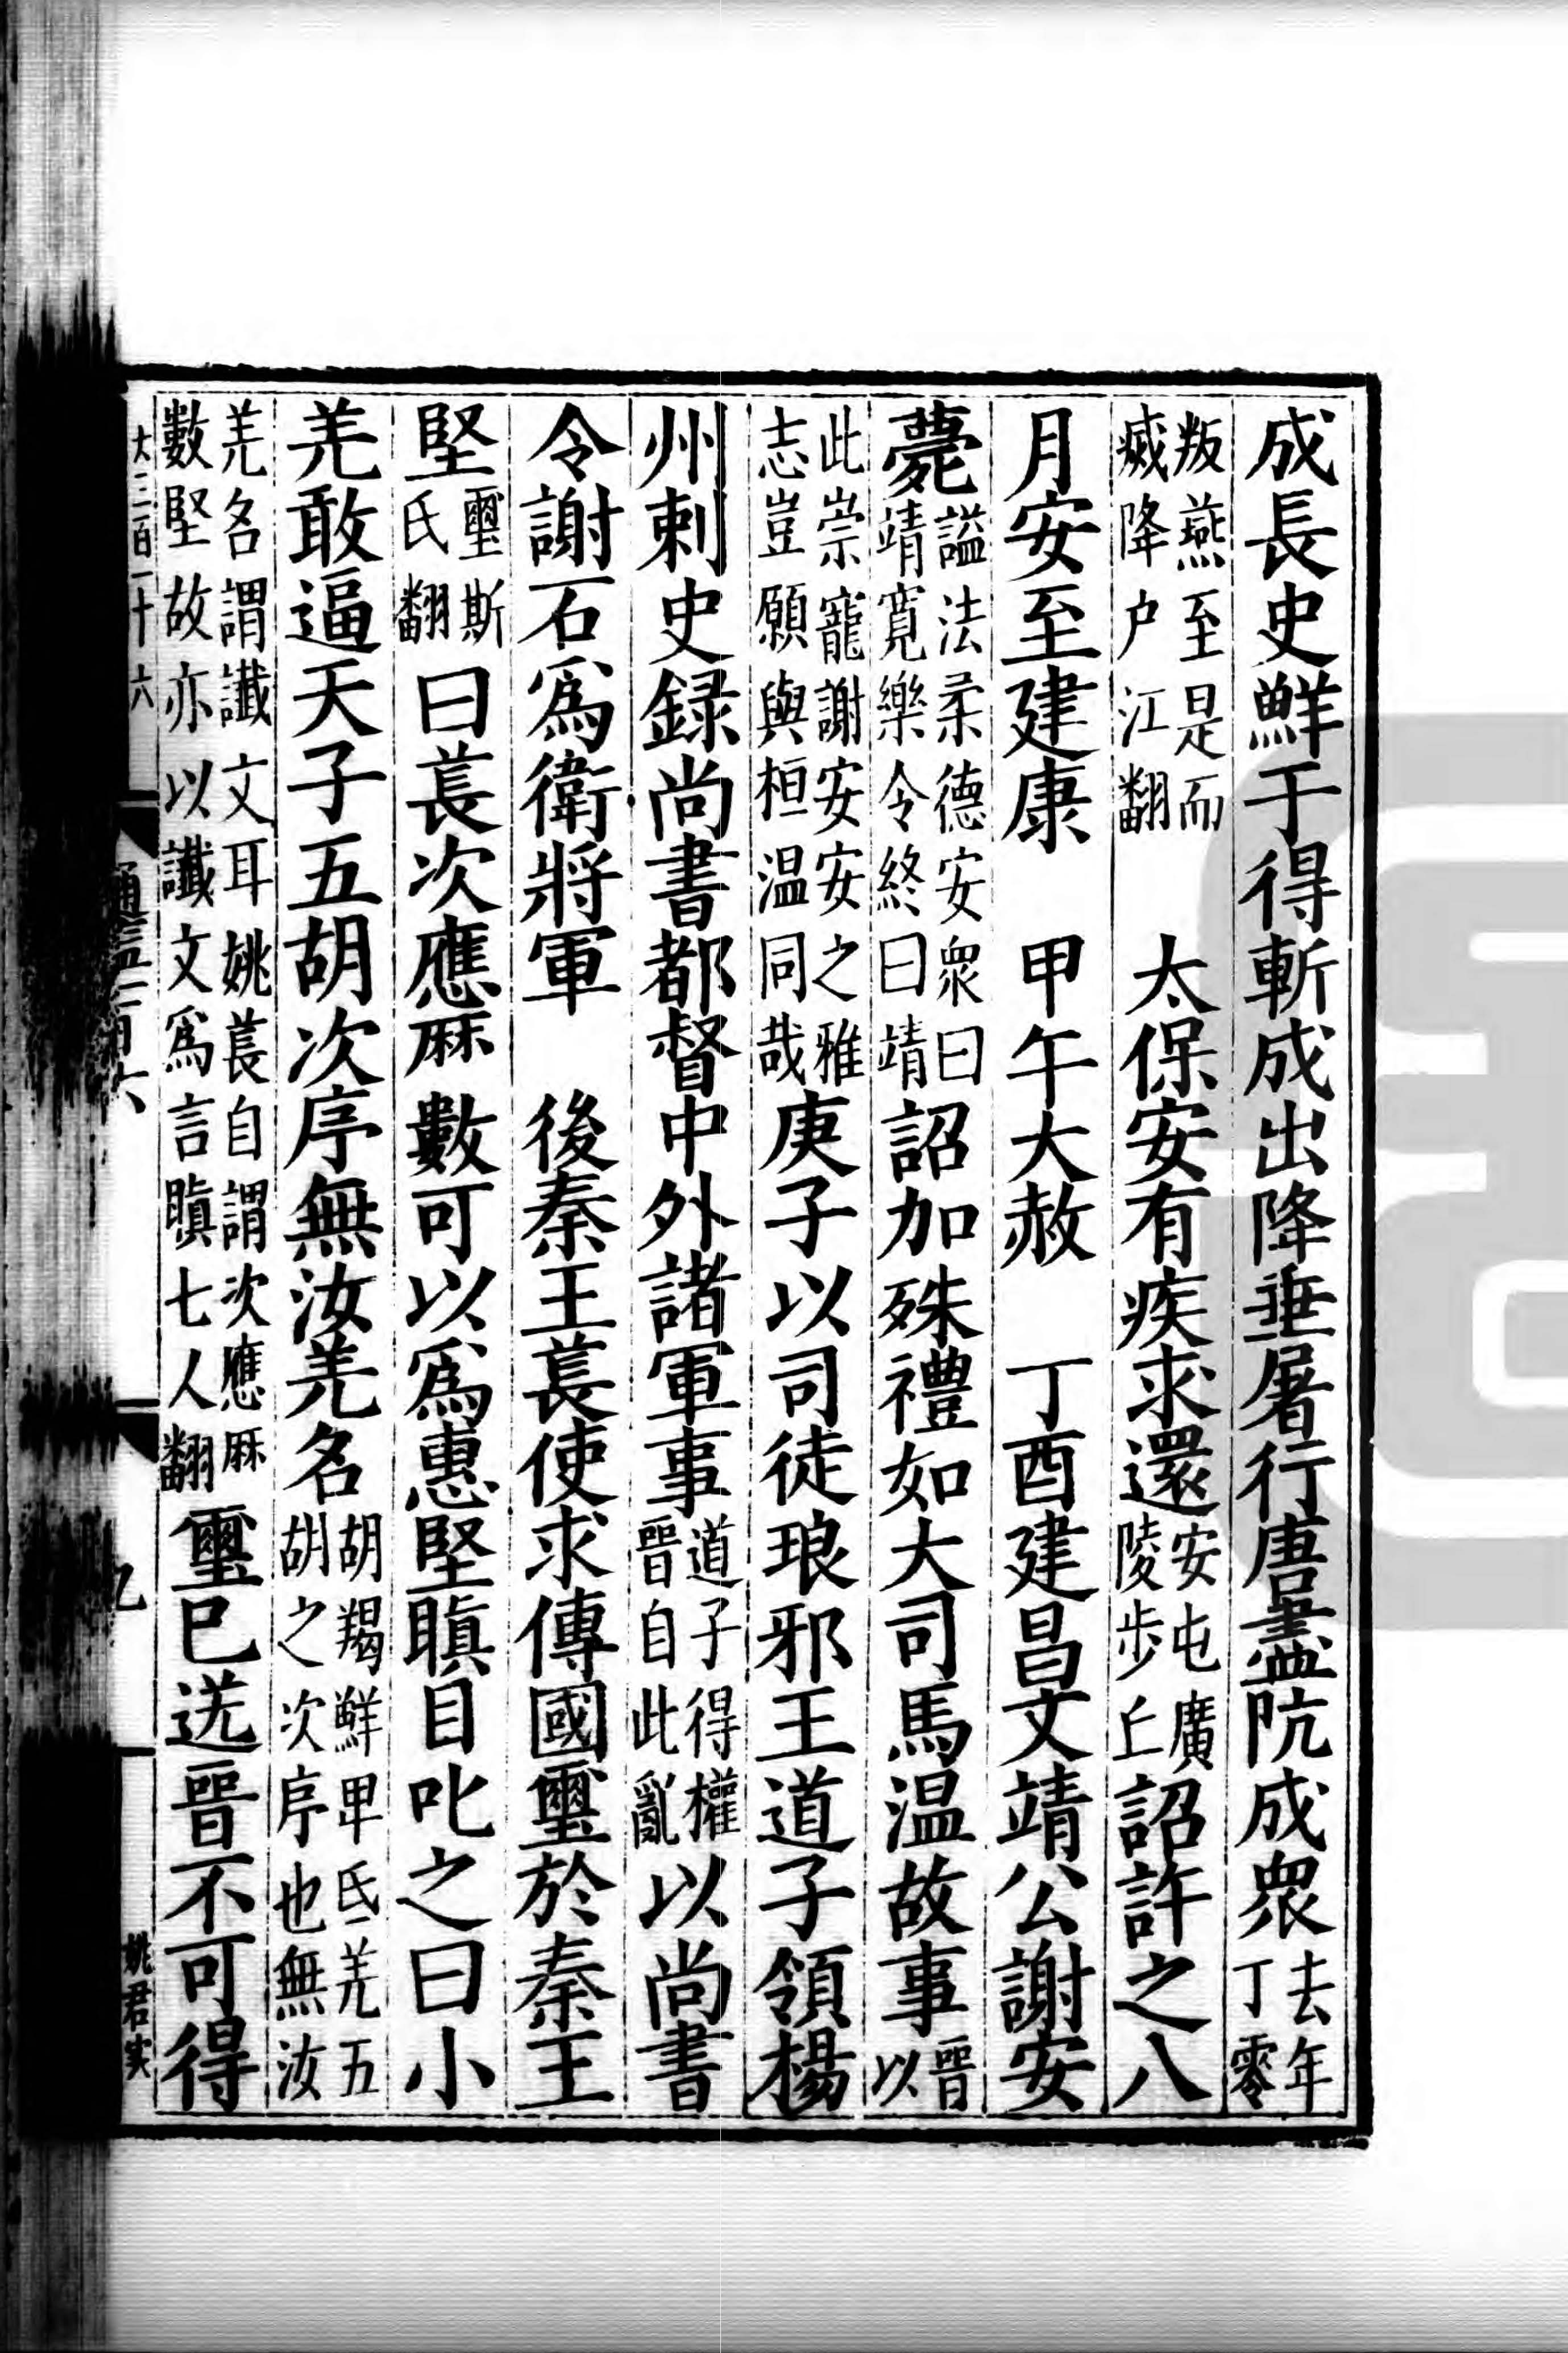 成長史鮮于得斬成出降垂屠行唐盡阬成衆去年丁零
叛燕至是而滅降户江翻　太保安有疾求還安屯廣陵步丘詔許之八
月安至建康　甲午大赦　丁酉建昌文靖公謝安
薨謚法柔德安衆曰靖寬樂令終曰靖詔加殊禮如大司馬温故事晉以
此崇寵謝安安之雅志豈願與桓温同哉庚子以司徒琅邪王道子領楊
州刺史録尚書都督中外諸軍事道子得權晉自此亂以尚書
令謝石爲衛將軍　後秦王萇使求傳國璽於秦王
堅璽斯氏翻曰萇次應厤數可以爲惠堅瞋目叱之曰小
羌敢逼天子五胡次序無汝羌名胡羯鮮卑氐羌五胡之次序也無汝
羌名謂讖文耳姚萇自謂次應厤數堅故亦以讖文爲言瞋七人翻璽已送晉不可得
大三百一十六
九
姚君实